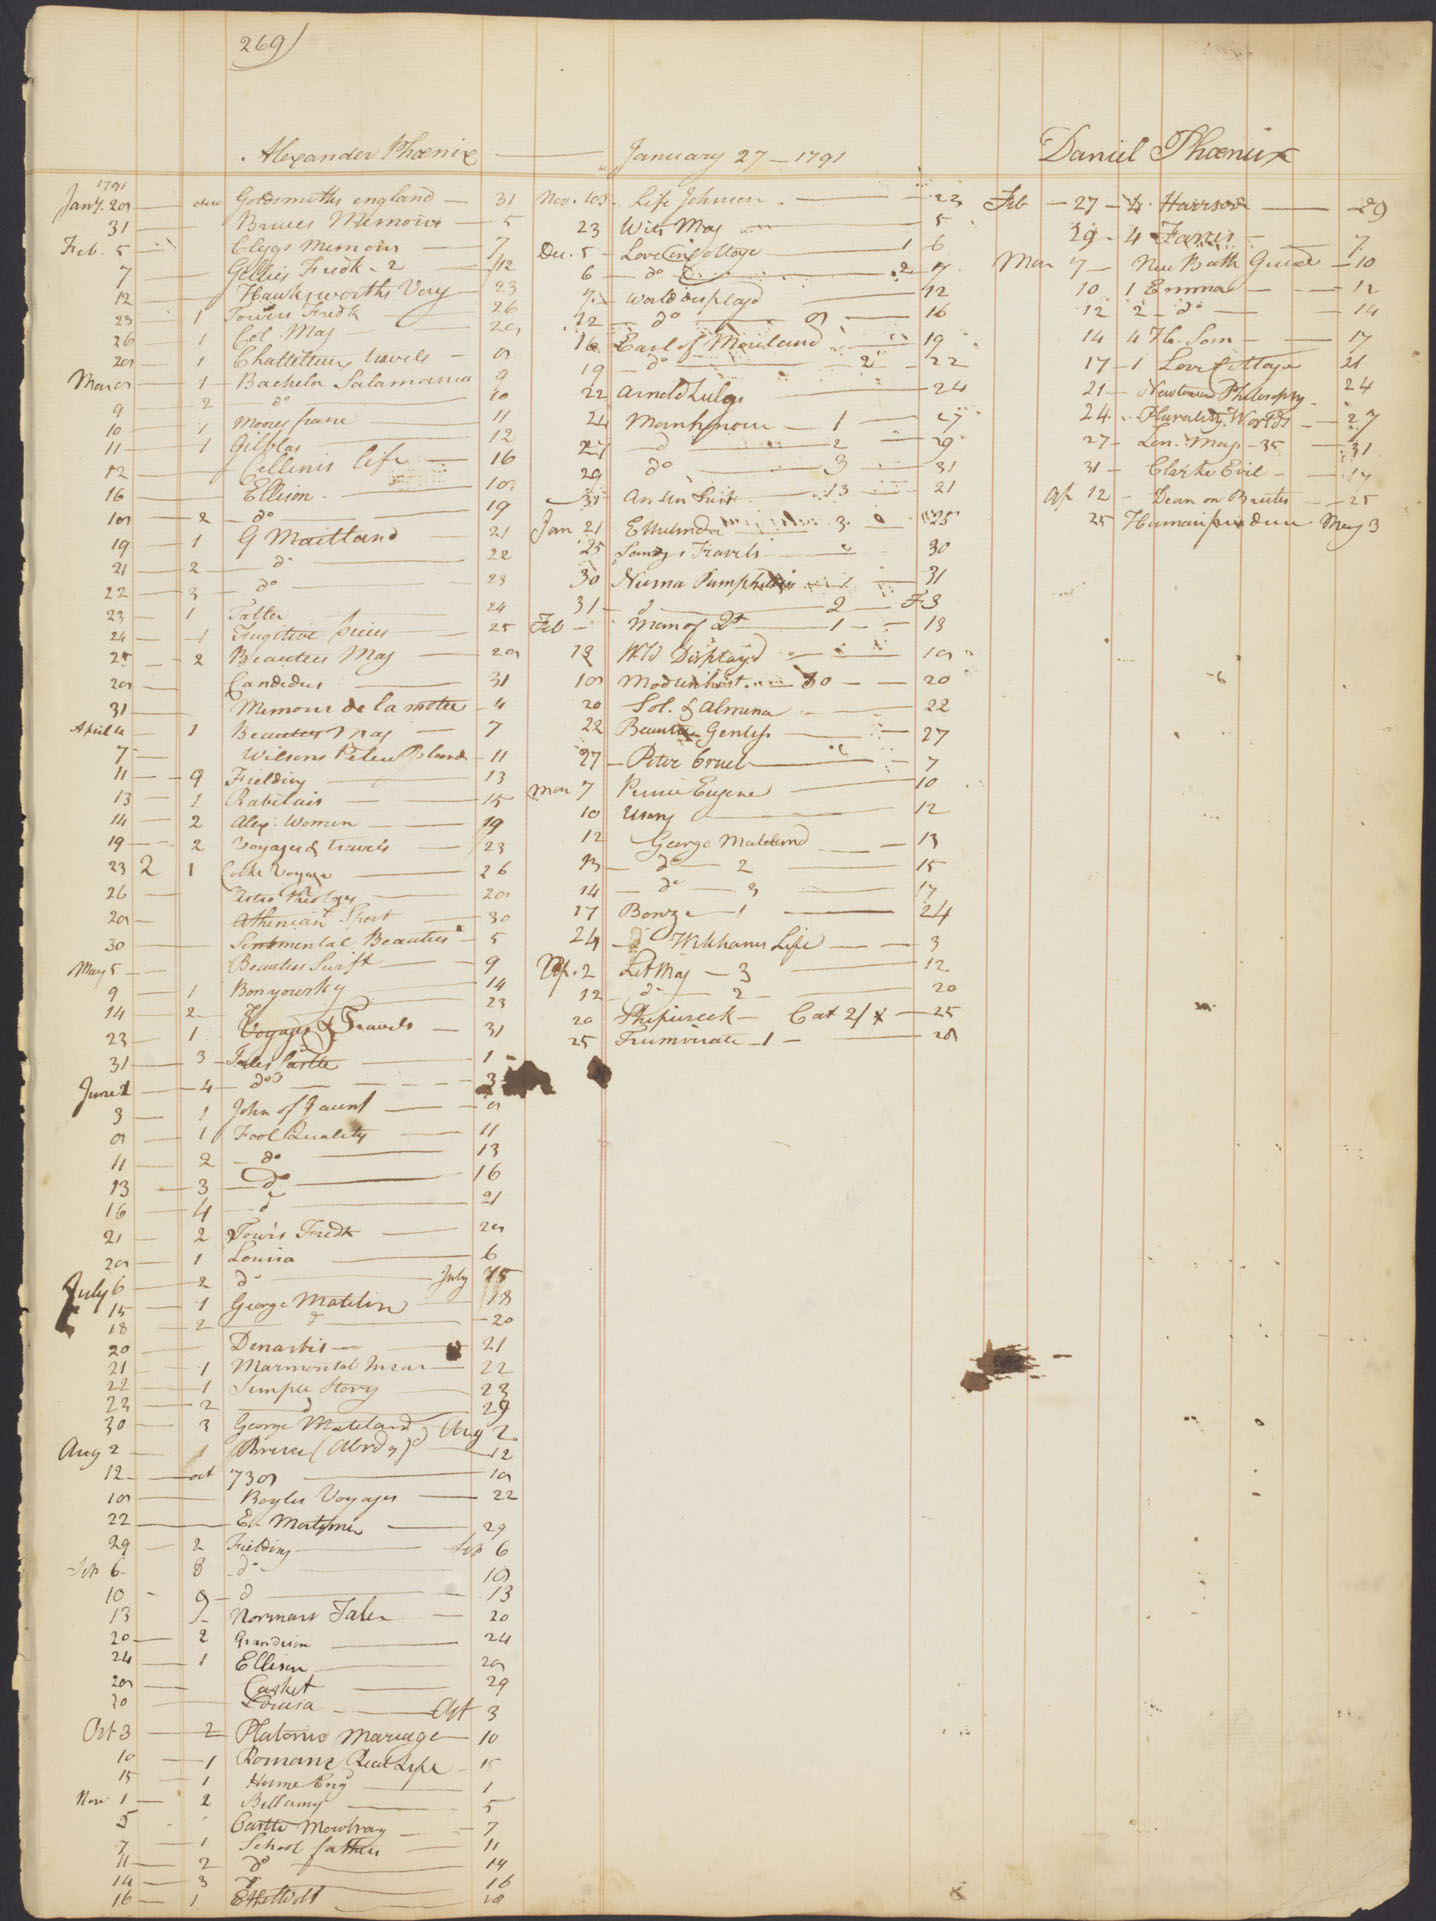 269
Alexander Phœnix — January 27 — 1791
1791
Jany. 28 — duo Goldsmiths england — 31
31 — Bruces Memoirs — 5
Feb. 5 — Cleggs Memoirs — 7
7 — Gillies Fredk - 2 — 12
12 — Hawksworths Voy — 23
23 — 1 Towers Fredk — 26
26 — 1 Col. Mag — 28
28 — 1 Chattelleux travels — 8
Mar 8 — 1 — Bachelor Salamanca 9
9 — 2 do — 10
10 — 1 Moores france — 11
11 — 1 Gilblas — 12
12 — Cellinis life — 16
16 — Ellison — 18
18 — 2 — do — 19
19 — 1 G Maitland 21
21 — 2 — do — 22
22 — 3 — do — 23
23 — 1 Tatler — 24
24 — 1 Fugitive pieces — 25
25 — 2 Beauties Mag — 28
28 — Candidus — 31
31 — Memoirs de la motte — 4
April 4 — 1 Beauties Mag — 7
7 — Wilsons Pelew Island — 11
11 — 9 Fielding — 13
13 — 1 Rabelais — 15
14 — 2 Alex. Women — 19
19 — 2 Voyages & travels — 23
23 2 1 Cooks Voyage — 26
26 — Astro theology — 28
28 — Athenian Sport — 30
30 — Sentmental Beauties — 5
May 5 — Beauties Swift — 9
9 — 1 Bonyowsky — 14
14 — 2 — 23
23 — 1 Voyages & Travels — 31
31 — 3 — Tales Castle — 1
June 1 — 4 — do — 3
3 — 1 John of Gaunt — 8
8 — 1 Fool Quality — 11
11 — 2 — do — 13
13 — 3 — do — 16
16 — 4 — d — 21
21 — 2 Towrs Fredk — 28
28 — 1 Louisa — 6
July 6 — 2 do — July 15
15 — 1 George Matelin — 18
18 — 2 — d — 20
20 — Denarbis — 21
21 — 1 Marmontel — 22
22 — 1 Simple Story — 23
23 — 2 — d — 29
30 — 3 George Mateland — Aug 2
Aug 2 — 1 Bruce (Abrdg) — 12
12 — oct 738 — 18
18 — Boyles Voyages — 22
22 — Ed Mortimer — 29
29 — 2 Fielding — Sep 6
Sep 6 — 8 do — 10
10 — 9 — d — 13
13 — Norman Tales — 20
20 — 2 Grandison — 24
24 — 1 Ellison — 28
28 — Casket — 29
30 — Louisa — Oct 3
Oct 3 — 2 Platonic Marriage — 10
10 — 1 Romance Real Life — 15
15 — 1 Hume Eng — 1
Nov 1 — 2 Bellamy — 5
5 Castle Mowbray — 7
7 — 1 School fathers — 11
11 — 2 do — 14
14 — 3 d — 16
16 — 1 — 18
Nov. 18 Life Johnson — 23
23 Wits Mag — 5
Dec. 5 — Love in Cottage — 1 6
6 — do — 2 7
7 — World displayd — 12
12 — do — 8 — 16
16 Earl of Moreland — 19
19 — do — 2 — 22
22 Arnold Zulig — 24
24 Manhpour — 1 — 27
27 — d — 2 — 29
29 do — 3 — 31
31 — 13 — 21
Jan 21 Ethelinda — 3 — 25
25 Sandys Travels — 30
30 Numa Pamphilius — 1 — 31
31 — d — 2 — F. 3
Feb — Man of Qt — 1 — 13
13 Wld Displayd — 18
18 Modern hist. — 30 — 20
20 Sol. & Almena — 22
22 Beauties Gentlys — 27
27 — Peter Cruel — 7
Mar 7 Prince Eugene — 10
10 — 12
12 George Mateland — 13
13 — do — 2 — 15
14 — do — 3 — 17
17 Bonze — 1 — 24
24 — Wikhams Life — 3
Ap. 2 Lit Mag — 3 — 12
12 — d — 2 — 20
20 Shipwreck — Cat 2/ — 25
25 Triumvirate — 1 — 28
Daniel Phœnix
Feb — 27 — 4 Harrison — 29
29 — 4 Farces — 7
Mar 7 — New Bath Guide — 10
10 1 Emma — 12
12 2 — do — 14
14 4 — 17
17 — 1 Love Cottage 21
21 — Newtonian Philosophy — 24
24 — Plurality Worlds — 27
27 — Lon. Mag — 35 — 31
31 — Clarke Evil — 12
Ap 12 — Dean on Brutes — 25
25 May 3